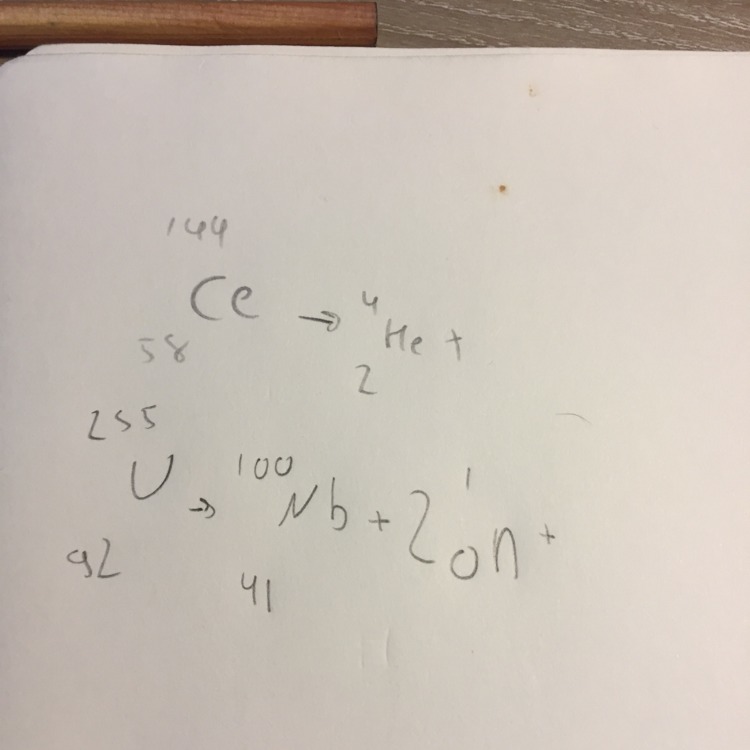 144
Ce → 4 He +
58 2
255
U → 100 Nb + 2 1 0 n +
92 41